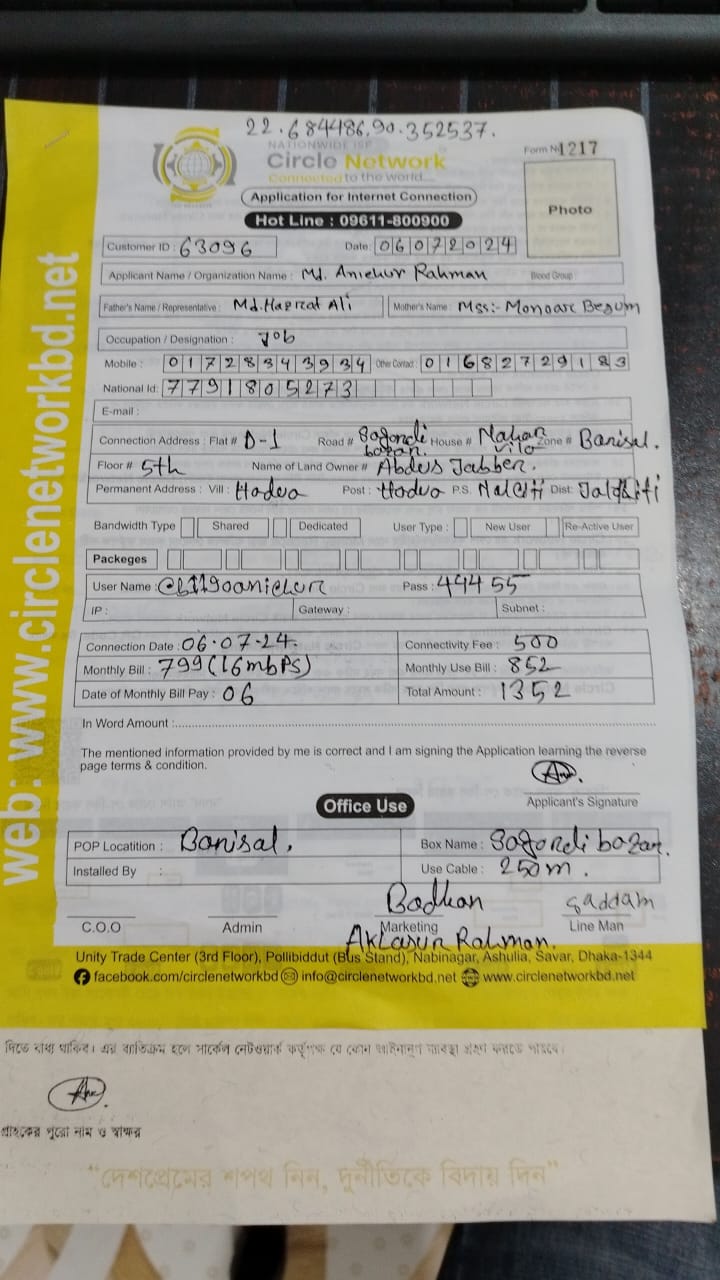 22.684486,90.352537.
NATIONWIDE ISP
Circle Network
Connected to the world...
Form No 1217
Application for Internet Connection
Hot Line : 09611-800900
Photo
Customer ID : 63096 Date: 06072024
Applicant Name / Organization Name : Md. Anichur Rahman Blood Group :
Father's Name / Representative : Md. Hazrat Ali Mother's Name : Mss:- Monoara Begum
Occupation / Designation : Job
Mobile : 01728343934 Other Contact : 01682729183
National Id: 7791805273
E-mail :
Connection Address : Flat # D-1 Road # Sagordi bazar. House # Nahar vila Zone # Barisal.
Floor # 5th Name of Land Owner # Abdus Jabber.
Permanent Address : Vill : Hadua Post : Hadua P.S. Nalciti Dist: Jalokiti
Bandwidth Type Shared Dedicated User Type : New User Re-Active User
Packeges
User Name : Pass : 44455
IP : Gateway : Subnet :
Connection Date : 06-07-24. Connectivity Fee : 500
Monthly Bill : 799 (16mbps) Monthly Use Bill : 852
Date of Monthly Bill Pay : 06 Total Amount : 1352
In Word Amount :
The mentioned information provided by me is correct and I am signing the Application learning the reverse
page terms & condition.
Applicant's Signature
Office Use
POP Locatition : Barisal. Box Name : Sagordi bazar.
Installed By : Use Cable : 250m.
Badhon Saddam
C.O.O Admin Marketing Line Man
Aklasur Rahman.
Unity Trade Center (3rd Floor), Pollibiddut (Bus Stand), Nabinagar, Ashulia, Savar, Dhaka-1344
facebook.com/circlenetworkbd info@circlenetworkbd.net www.circlenetworkbd.net
web: www.circlenetworkbd.net
দিতে বাধ্য থাকিব। এর ব্যতিক্রম হলে সার্কেল নেটওয়ার্ক কর্তৃপক্ষ যে কোন আইনানুগ ব্যবস্থা গ্রহণ করতে পারবে।
গ্রাহকের পুরো নাম ও স্বাক্ষর
“দেশপ্রেমের শপথ নিন, দুর্নীতিকে বিদায় দিন”